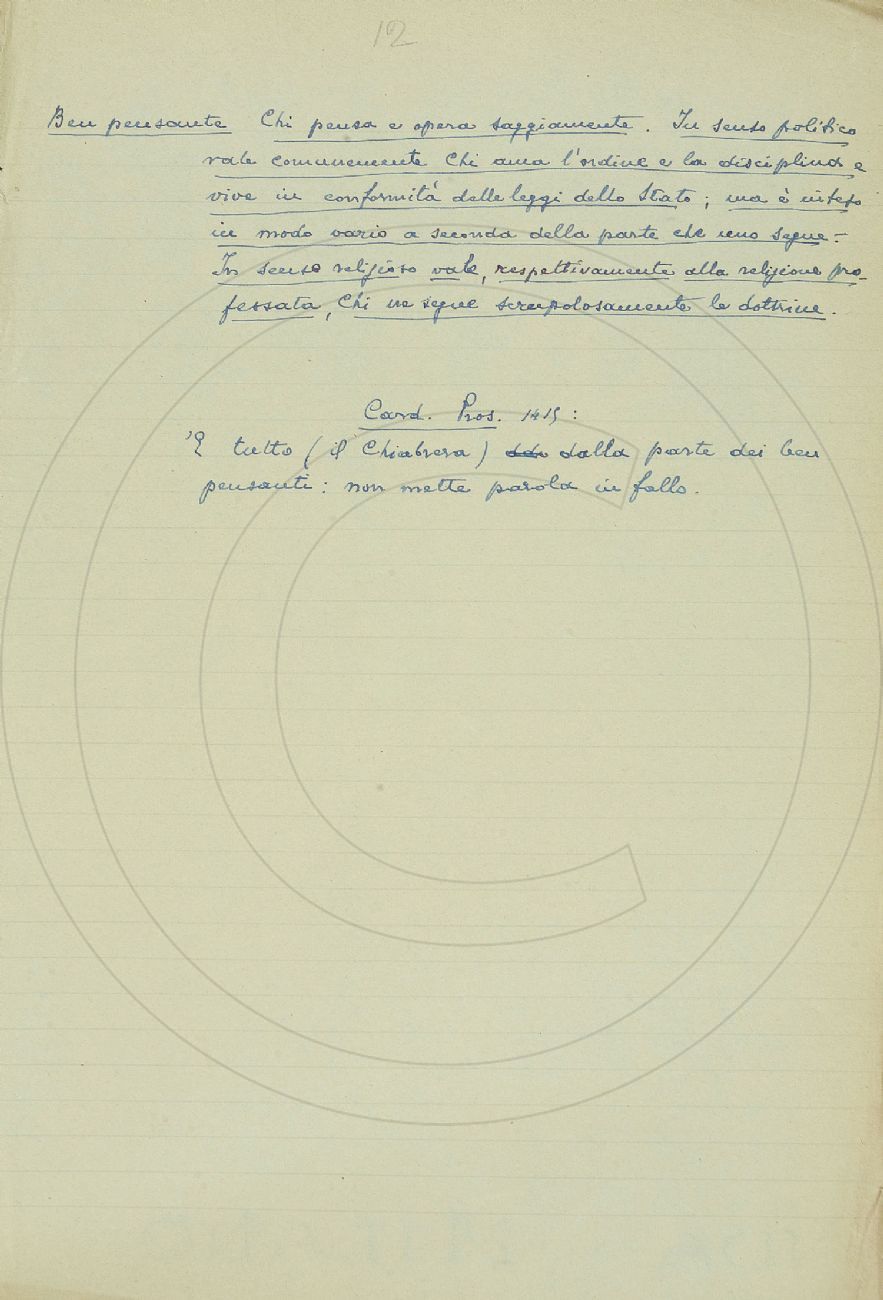 12
Ben pensante Chi pensa e opera saggiamente. In senso politico
vale comunemente Chi ama l'ordine e la disciplina e
vive in conformità delle leggi dello Stato; ma è inteso
in modo vario a seconda della parte che uno segue.-
In senso religioso vale, respettivamente alla religione pro-
fessata, Chi ne segue scrupolosamente le dottrine.
Card. Pros. 1415:
'E tutto (il Chiabrera) dalla parte dei ben
pensanti: non mette parola in fallo.